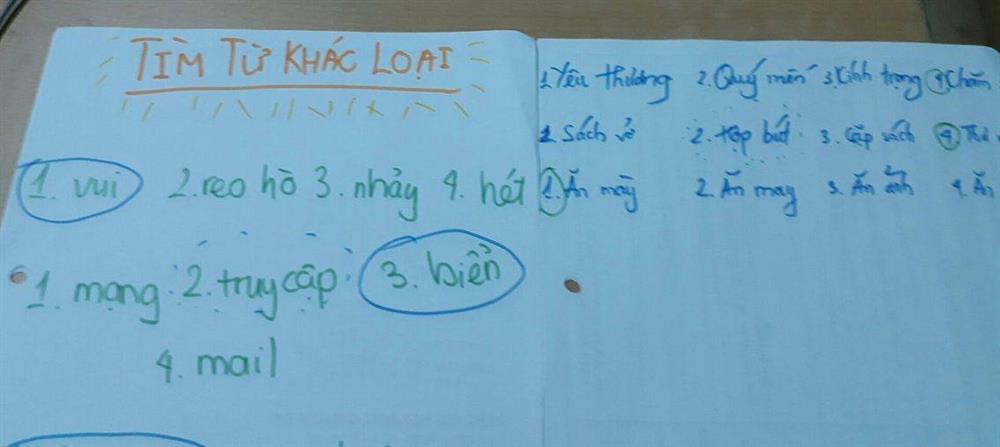 TÌM TỪ KHÁC LOẠI
1. vui 2. reo hò 3. nhảy 4. hét
1. mạng 2. truy cập 3. biển
4. mail
1. Yêu thương 2. Quý mến 3. Kính trọng 4. Chăm
1. Sách vở 2. tập bút 3. Cặp sách 4.
1. Ăn mày 2. Ăn may 3. Ăn ảnh 4. Ăn